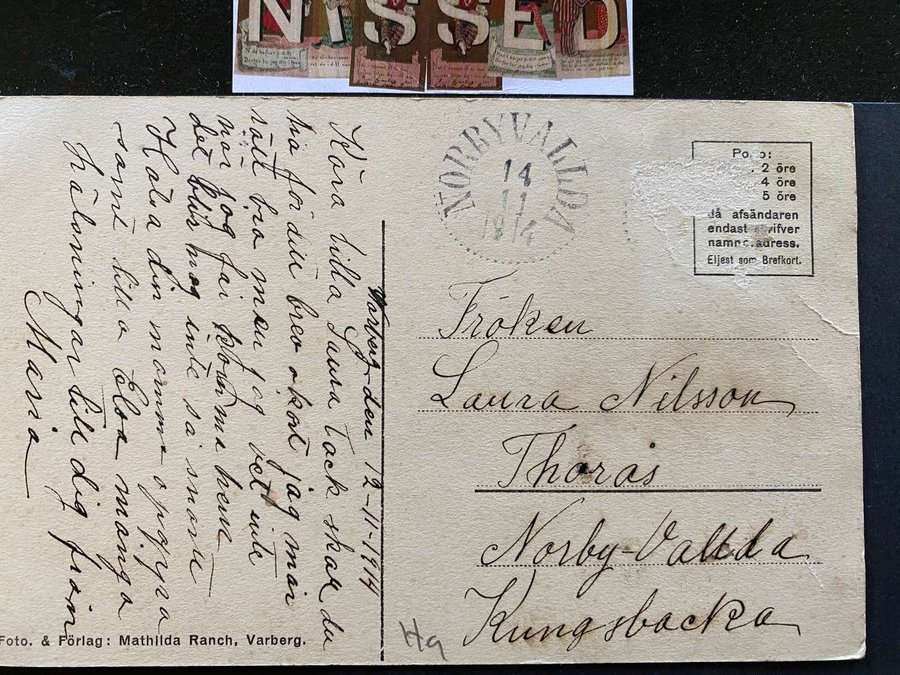 NISSED
Varberg den 12-11-1914
Kära lilla Laura tack skar du
ha för ditt brev o kort jag mår
rätt bra men jag vet inte
når jag får komma hem
det blir nog inte så snart
Halsa din mamma o pappa
samt lilla Elsa många
hälsningar till dig från
Maria
Foto. & Förlag: Mathilda Ranch, Varberg.
NORBYVALLDA
14
11
1914
Porto:
2 öre
4 öre
5 öre
då afsändaren
endast skrifver
namn o. adress.
Eljest som Brefkort.
Fröken
Laura Nilsson
Thorås
Norby-Vallda
Kungsbacka
Ha